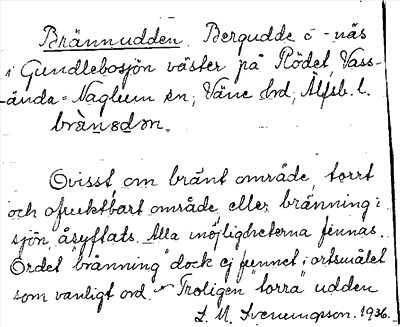 Brännudden. Bergudde o -näs
i Gundlebosjön väster på Rödet, Vass-
ända-Naglum sn, Väne hd, Älfsb. l.
brànu̇dən.
Ovisst, om bränt område, torrt
och ofruktbart område eller bränning i
sjön åsyftats. Alla möjligheterna finnas.
Ordet "bränning" dock ej funnet i ortsmålet
som vanligt ord. Troligen "torra" udden
L. M. Svenungson. 1936.